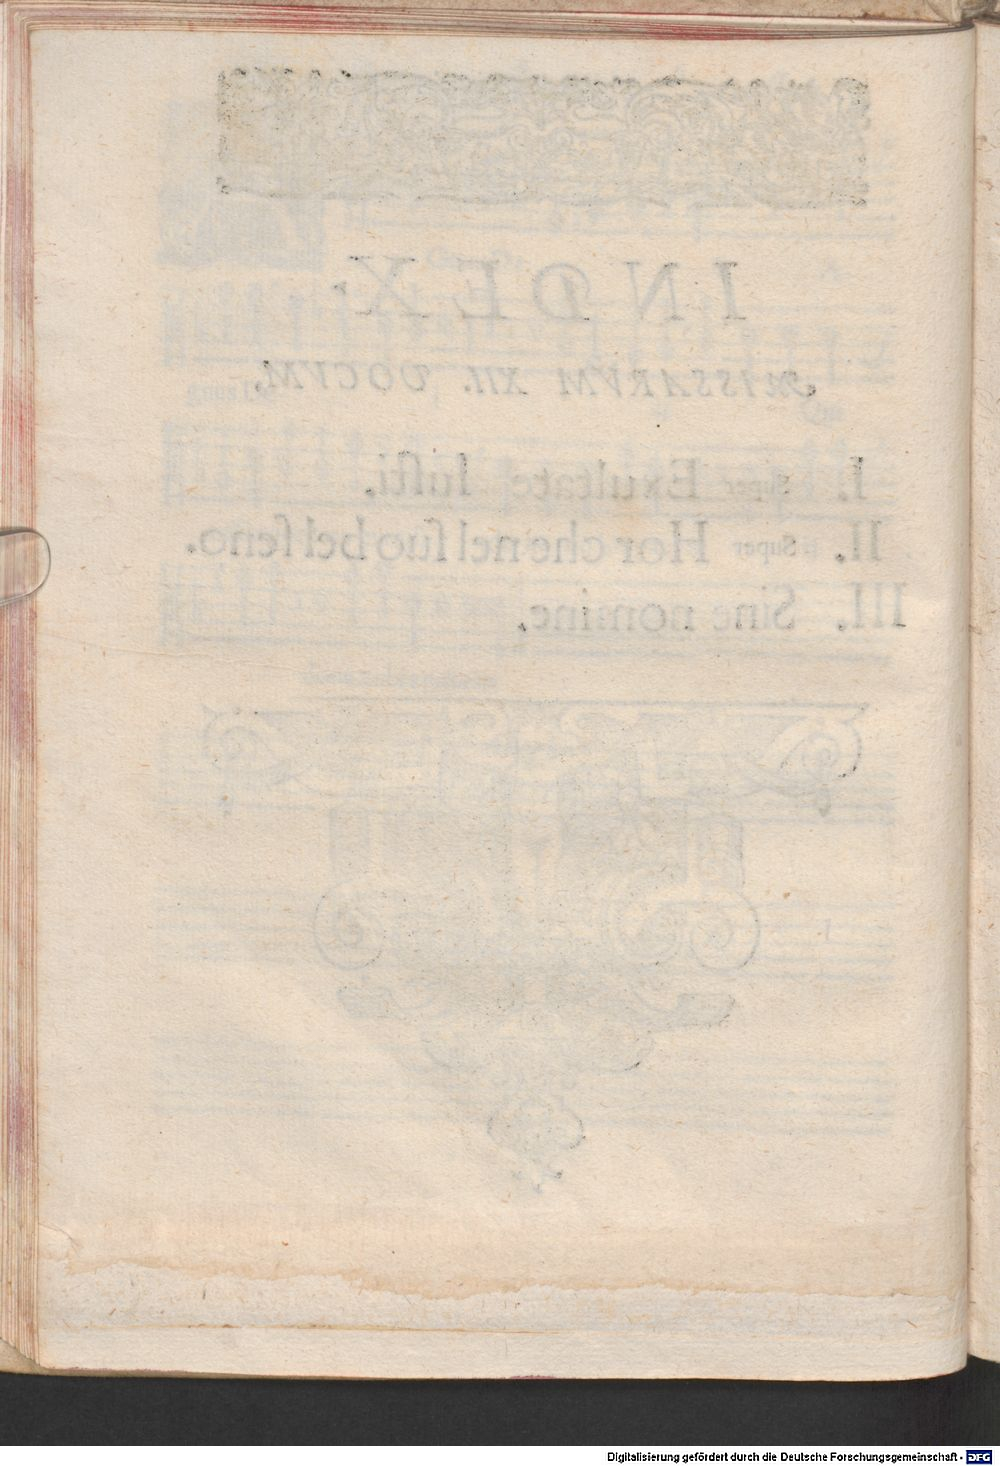 INDEX,
MISSARVM XII. VOCVM,
I. Super Exultate Iuſti.
II. Super Hor che nel ſuo bel ſeno.
III. Sine nomine.
Digitalisierung gefördert durch die Deutsche Forschungsgemeinschaft - DFG